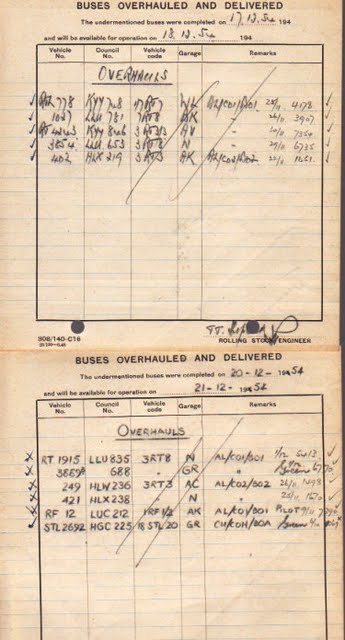 BUSES OVERHAULED AND DELIVERED
The undermentioned buses were completed on 17.12.54 194
and will be available for operation on 18.12.54 194
Vehicle No. Council No. Vehicle code Garage Remarks
OVERHAULS
778 KYY 708 AL/KO1/BO1 4178
1027 LLU 781 AK " 3907
KYY 806 AV "
3854 LLU 653 N " 6735
402 HLX 219 3RT3 AK AL/KO2/BO2 1051
308/140-C16
ROLLING STOCK ENGINEER
BUSES OVERHAULED AND DELIVERED
The undermentioned buses were completed on 20-12-1954
and will be available for operation on 21-12-1954
Vehicle No. Council No. Vehicle code Garage Remarks
OVERHAULS
RT 1915 LLU 835 3RT8 N AL/KO1/BO1 1/12
688 " GR " Green
249 HLW 236 3RT3 AC AL/KO2/BO2 26/11 1298
421 HLX 238 " N " 1570
RF 12 LUC 212 1RF1/2 AK AL/KO1/BO1 PILOT
STL2692 HGC 225 18 STL20 GR CH/KOH/BOA Green